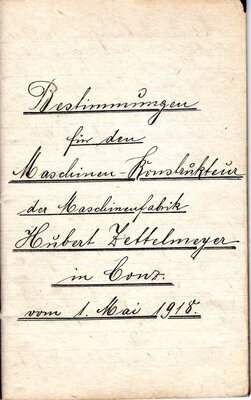 Bestimmungen
für den
Maschinen-Konstrukteur
der Maschinenfabrik
Hubert Zettelmeyer
in Conz.
vom 1. Mai 1918.